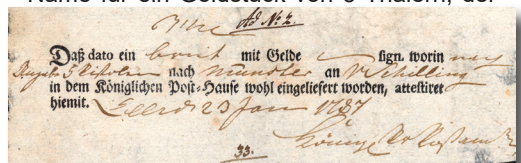 Name für ein Geldstück von 5 Thalern, der
Ad No: 2.
Daß dato ein brief mit Gelde sign. worin nach
5 Pistolen nach Münster an V Schilling
in dem Königlichen Post-Hause wohl eingeliefert worden, attestiret
hiemit. Leer d 23 Jan 1787
Königl
33.